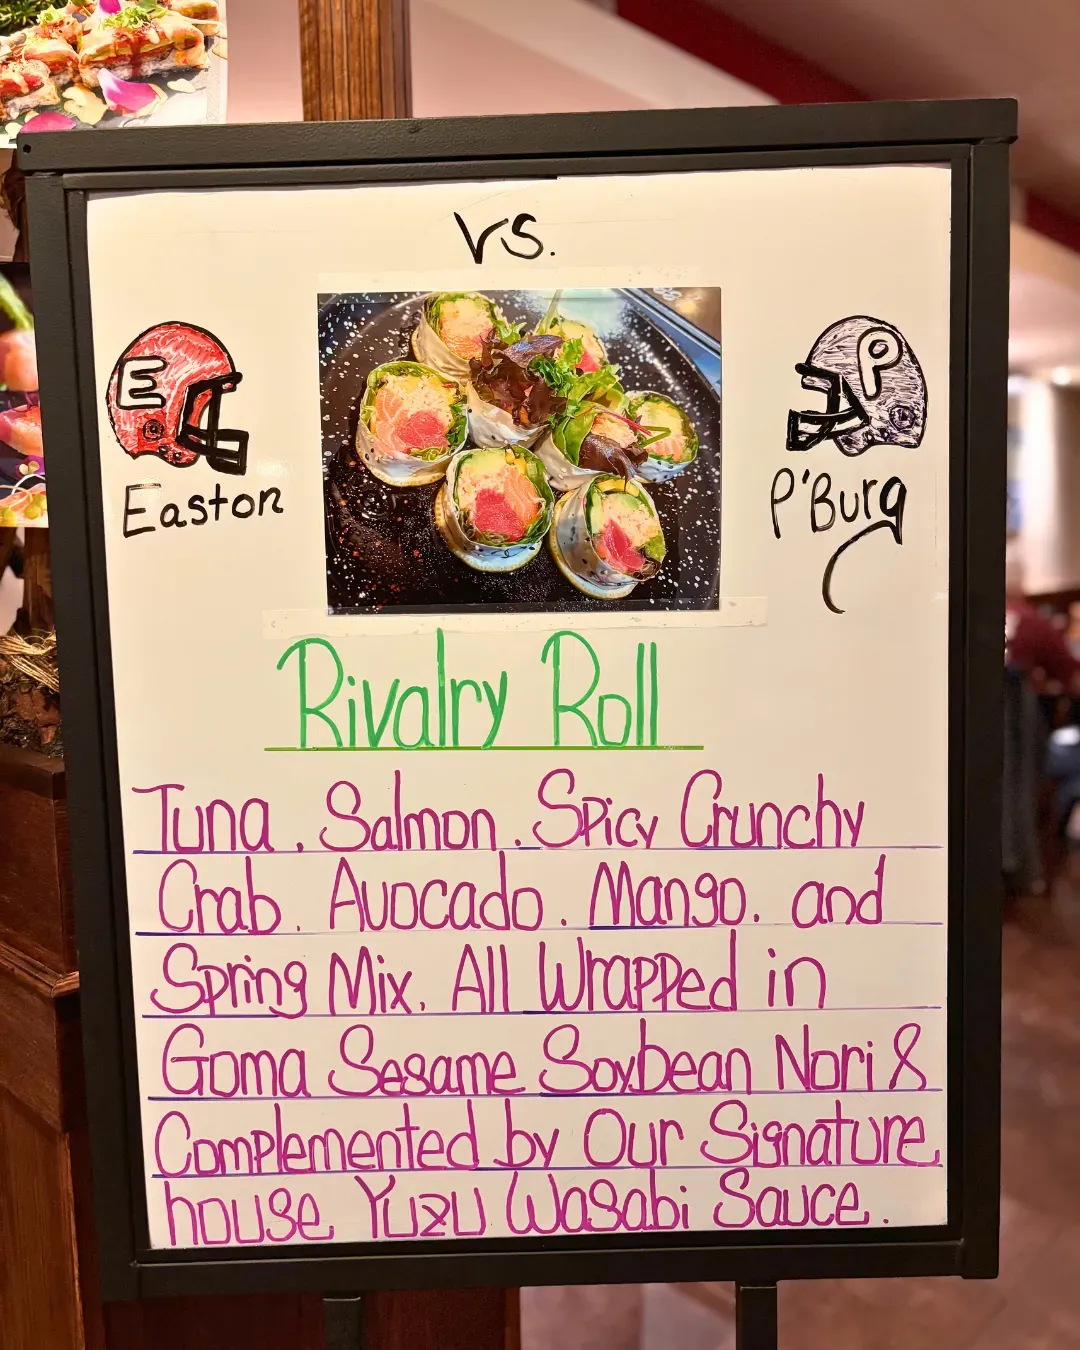 vs.
E
P
Easton
P'Burg
Rivalry Roll
Tuna, Salmon, Spicy Crunchy
Crab, Avocado, Mango, and
Spring Mix, All Wrapped in
Goma Sesame Soybean Nori &
Complemented by Our Signature
house Yuzu Wasabi Sauce.